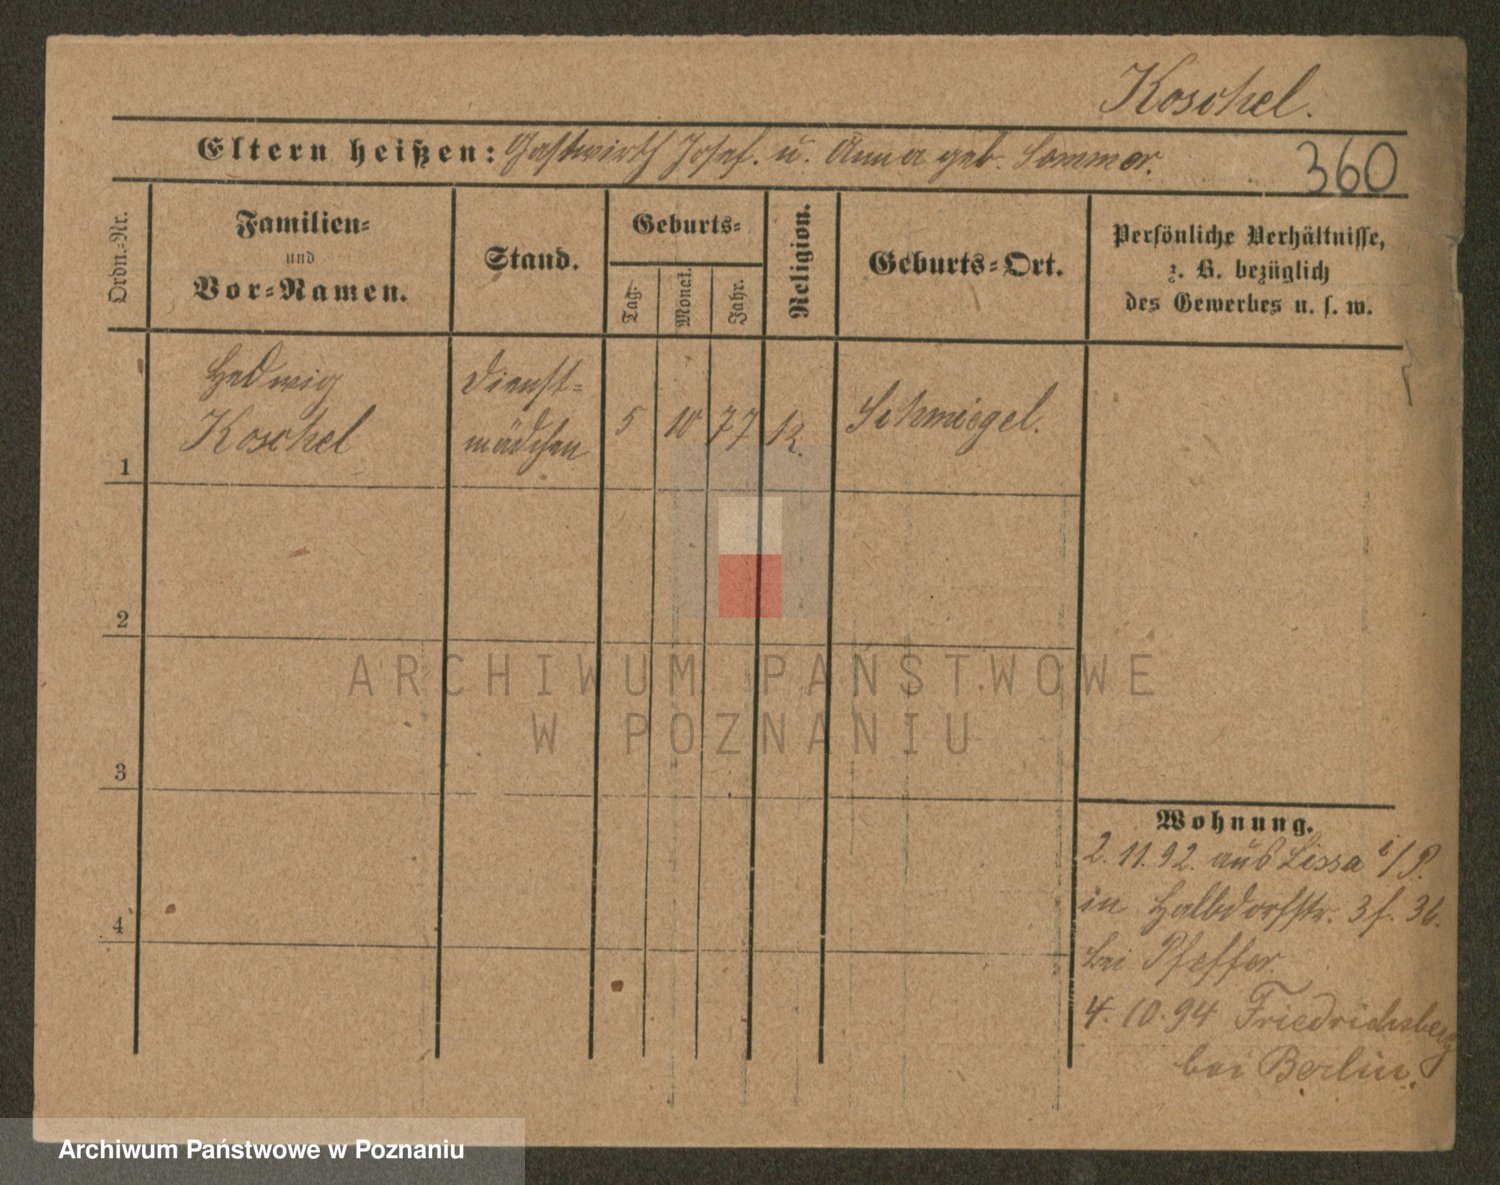 Koschel.
Eltern heißen: Gastwirth Josef. u. Anna geb. Sommer.
360
Ordn.=Nr.
Familien=
und
Vor=Namen.
Stand.
Geburts=
Tag.
Monat.
Jahr.
Religion.
Geburts=Ort.
Persönliche Verhältnisse,
z. B. bezüglich
des Gewerbes u. s. w.
Hedwig
Koschel
Dienst=
mädchen
5
10
77
k.
Schmiegel.
1
2
ARCHIWUM PAŃSTWOWE
W POZNANIU
3
4
Wohnung.
2.11.92. aus Lissa i/P.
in Halbdorfstr. 3 f. 36.
bei Pfeffer.
4.10.94 Friedrichsberg
bei Berlin.
Archiwum Państwowe w Poznaniu